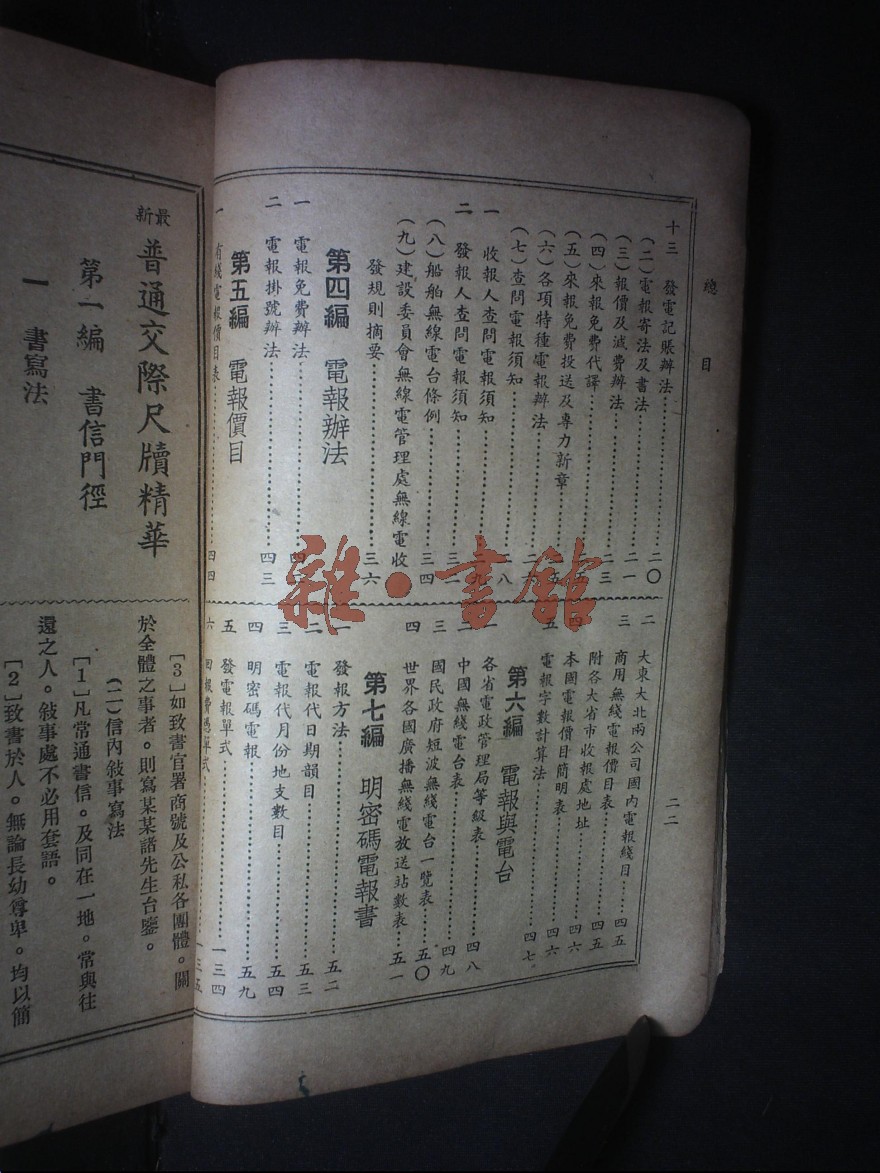 總目
二二
十三 發電記賬辦法⋯⋯二〇
(二)電報寄法及書法⋯⋯二一
(三)報價及減費辦法⋯⋯二三
(四)來報免費代譯
(五)來報免費投送及專力新章
(六)各項特種電報辦法
(七)查問電報須知
一 收報人查問電報須知
二 發報人查問電報須知
(八)船舶無線電台條例⋯⋯三四
(九)建設委員會無線電管理處無線電收
發規則摘要⋯⋯三六
第四編 電報辦法
一 電報免費辦法
二 電報掛號辦法⋯⋯四三
第五編 電報價目
一 有綫電報價目表⋯⋯四四
二 大東大北兩公司國內電報綫目⋯⋯四五
三 商用無綫電報價目表⋯⋯四五
附各大省市收報處地址⋯⋯四六
四 本國電報價目簡明表⋯⋯四六
五 電報字數計算法⋯⋯四七
第六編 電報與電台
一 各省電政管理局等級表⋯⋯四八
二 中國無綫電台表⋯⋯四九
三 國民政府短波無綫電台一覽表⋯⋯五〇
四 世界各國廣播無綫電放送站數表⋯⋯五一
第七編 明密碼電報書
一 發報方法⋯⋯五二
二 電報代日期韻目⋯⋯五三
三 電報代月份地支數目⋯⋯五四
四 明密碼電報⋯⋯五九
五 發電報單式⋯⋯一三四
六 回報費憑單式⋯⋯一三五
最新 普通交際尺牘精華
第一編 書信門徑
一 書寫法
[3]如致書官署商號及公私各團體。關
於全體之事者。則寫某某諸先生台鑒。
(二)信內敍事寫法
[1]凡常通書信。及同在一地。常與往
還之人。敍事處不必用套語。
[2]致書於人。無論長幼尊卑。均以簡
雜·書館